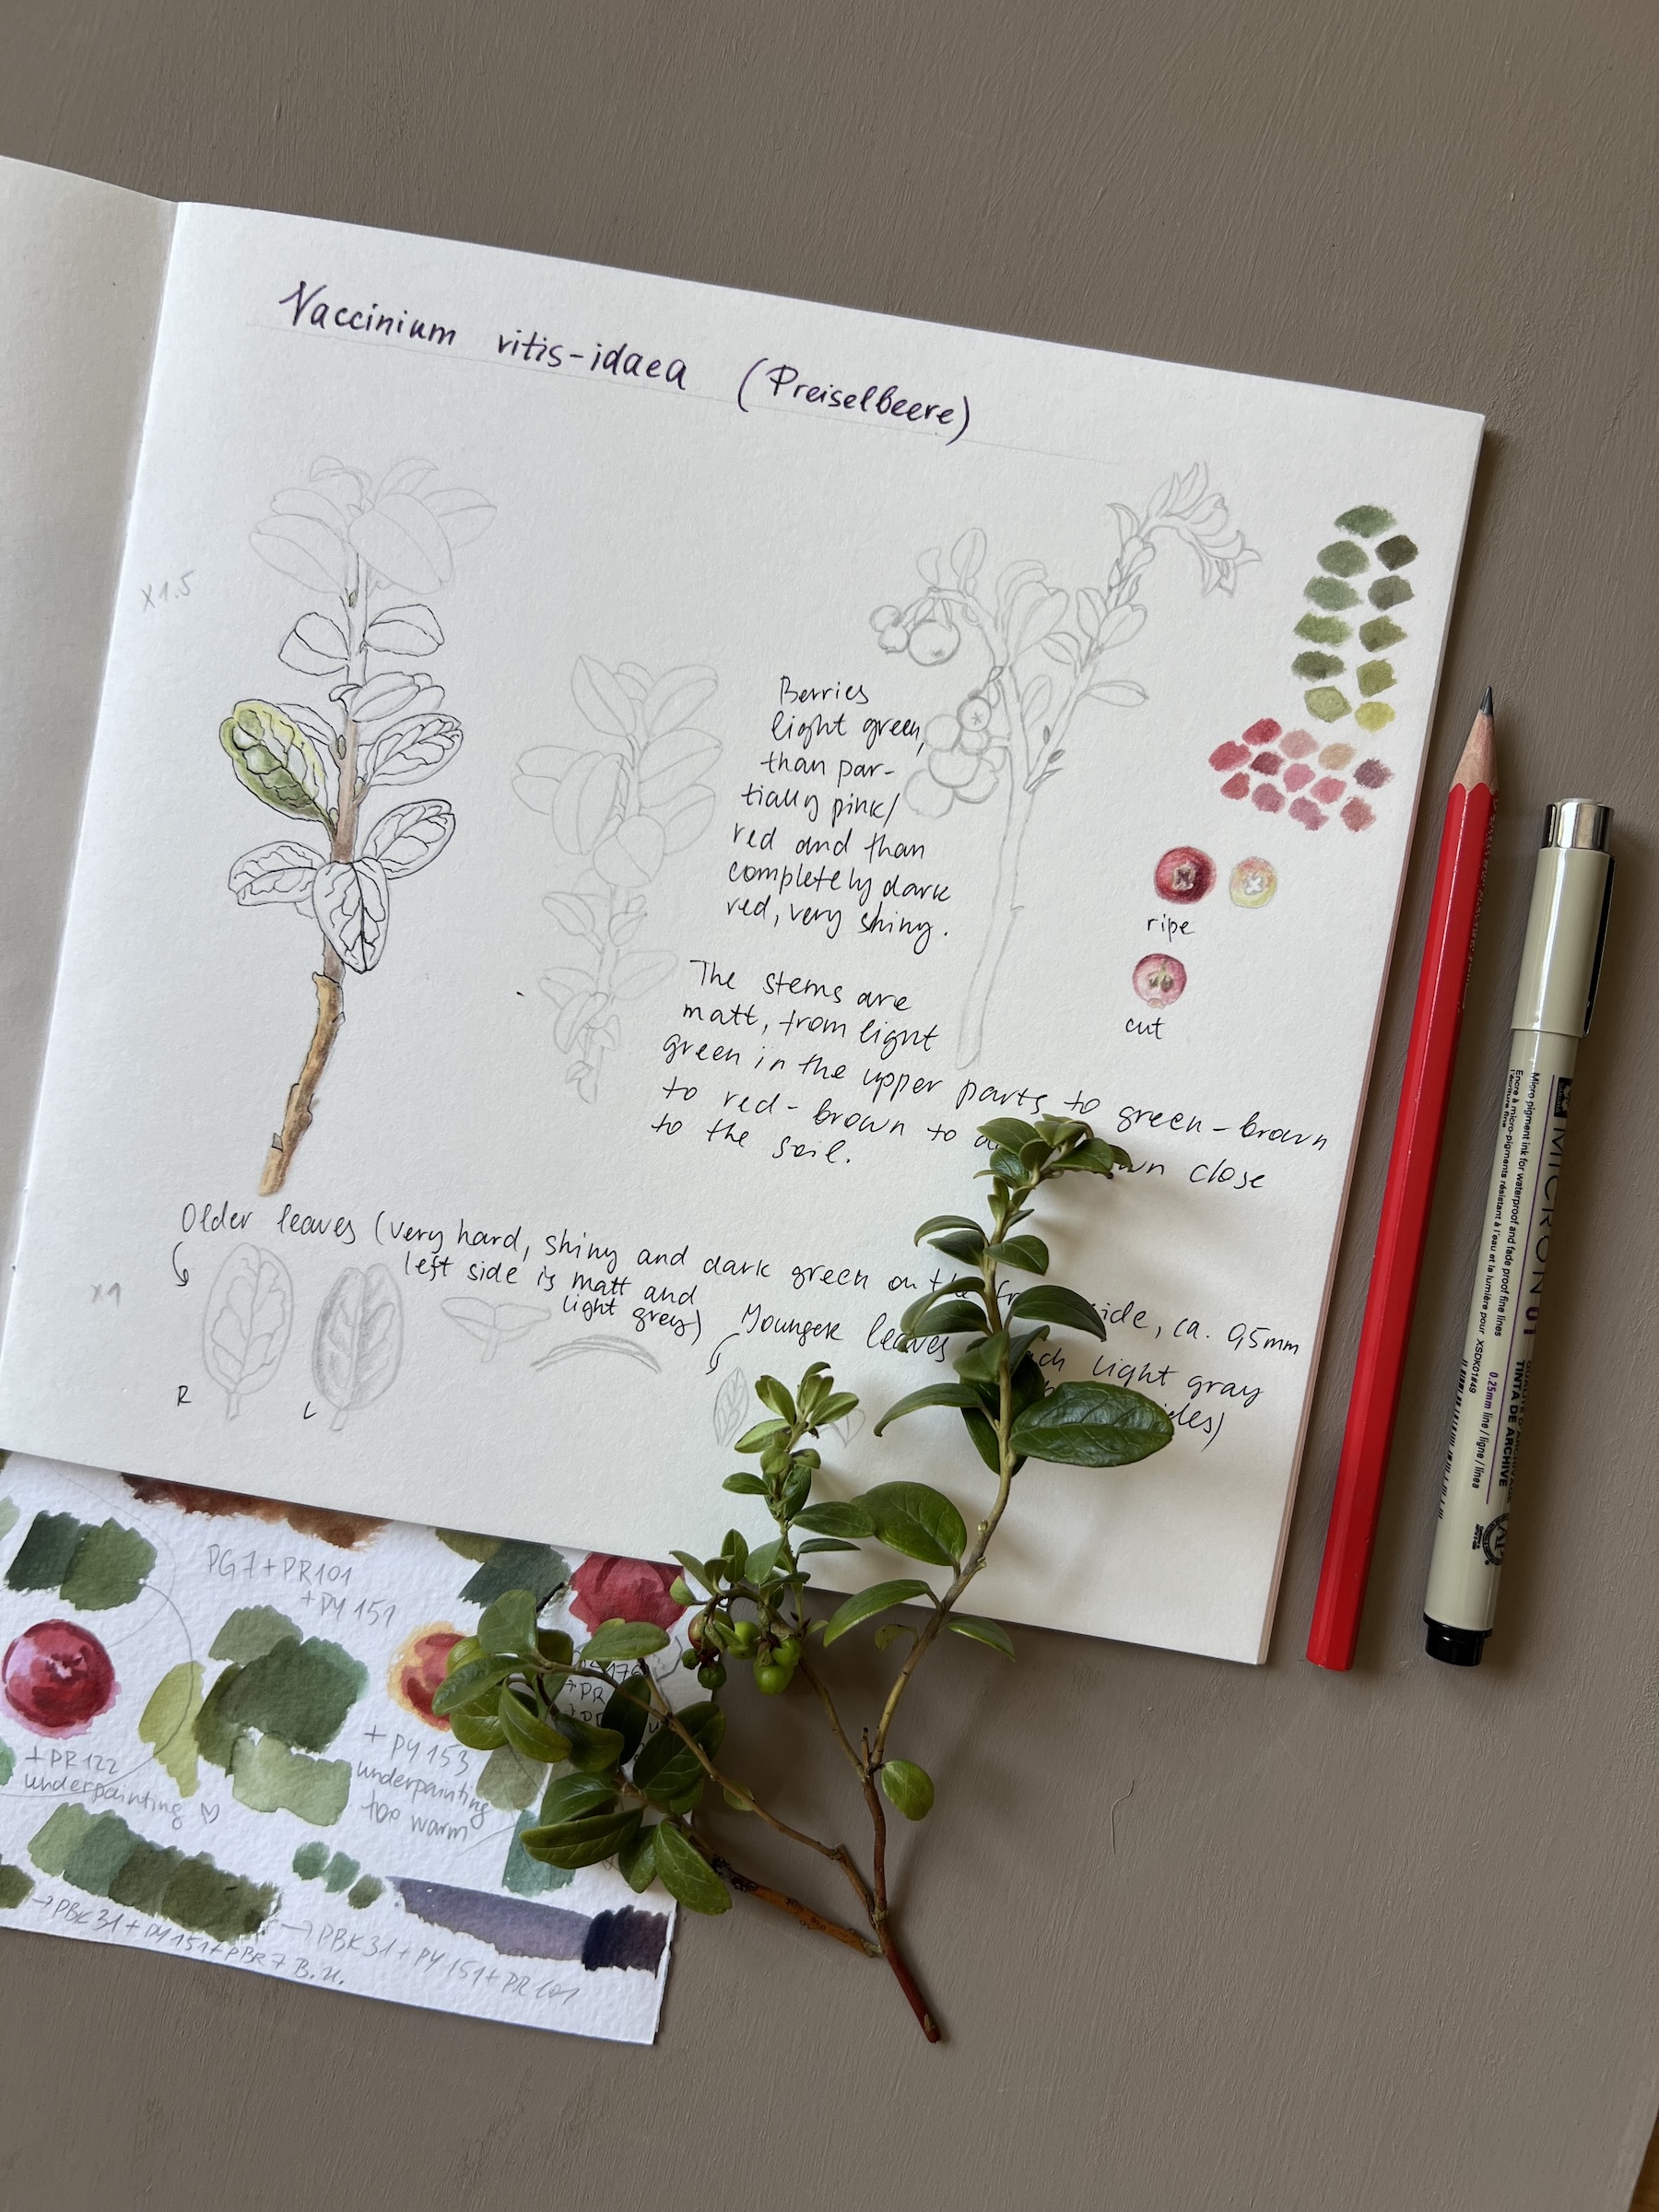 Vaccinium vitis-idaea (Preiselbeere)
x1.5
Berries
light green,
than par-
tially pink/
red and than
completely dark
red, very shiny.
ripe
cut
The stems are
matt, from light
green in the upper parts to green-brown
to red-brown to close
to the soil.
Older leaves (very hard, shiny and dark green on the side, ca. 0,5mm
left side is matt and
light grey)
x1
R
L
Younger leaves light gray
PG7+PR101
+PY151
+PR122
underpainting ♡
+PY153
underpainting
too warm
→PBK31+PY151+PBR7 B.U.
→PBK31+PY151+PR101
MICRON 01
Micro pigment ink for waterproof and fade proof fine lines
Encre à micro-pigments résistant à l'eau et la lumière pour l'écriture fine
XSDK01#49
0.25mm line / ligne / línea
TINTA DE ARCHIVE